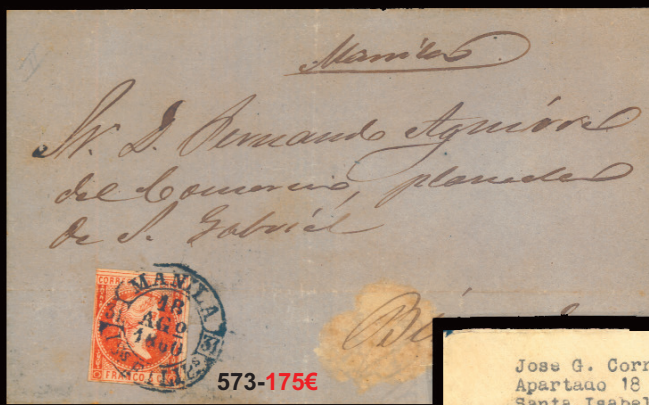 Manila
Sr. D. Fernando Aguirre
del Comercio, plazuela
de S. Gabriel
CORREOS
MANILA
18
AGO
1860
31
31
FRANCO
573-175€
Jose G. Corr
Apartado 18
Santa Isabel